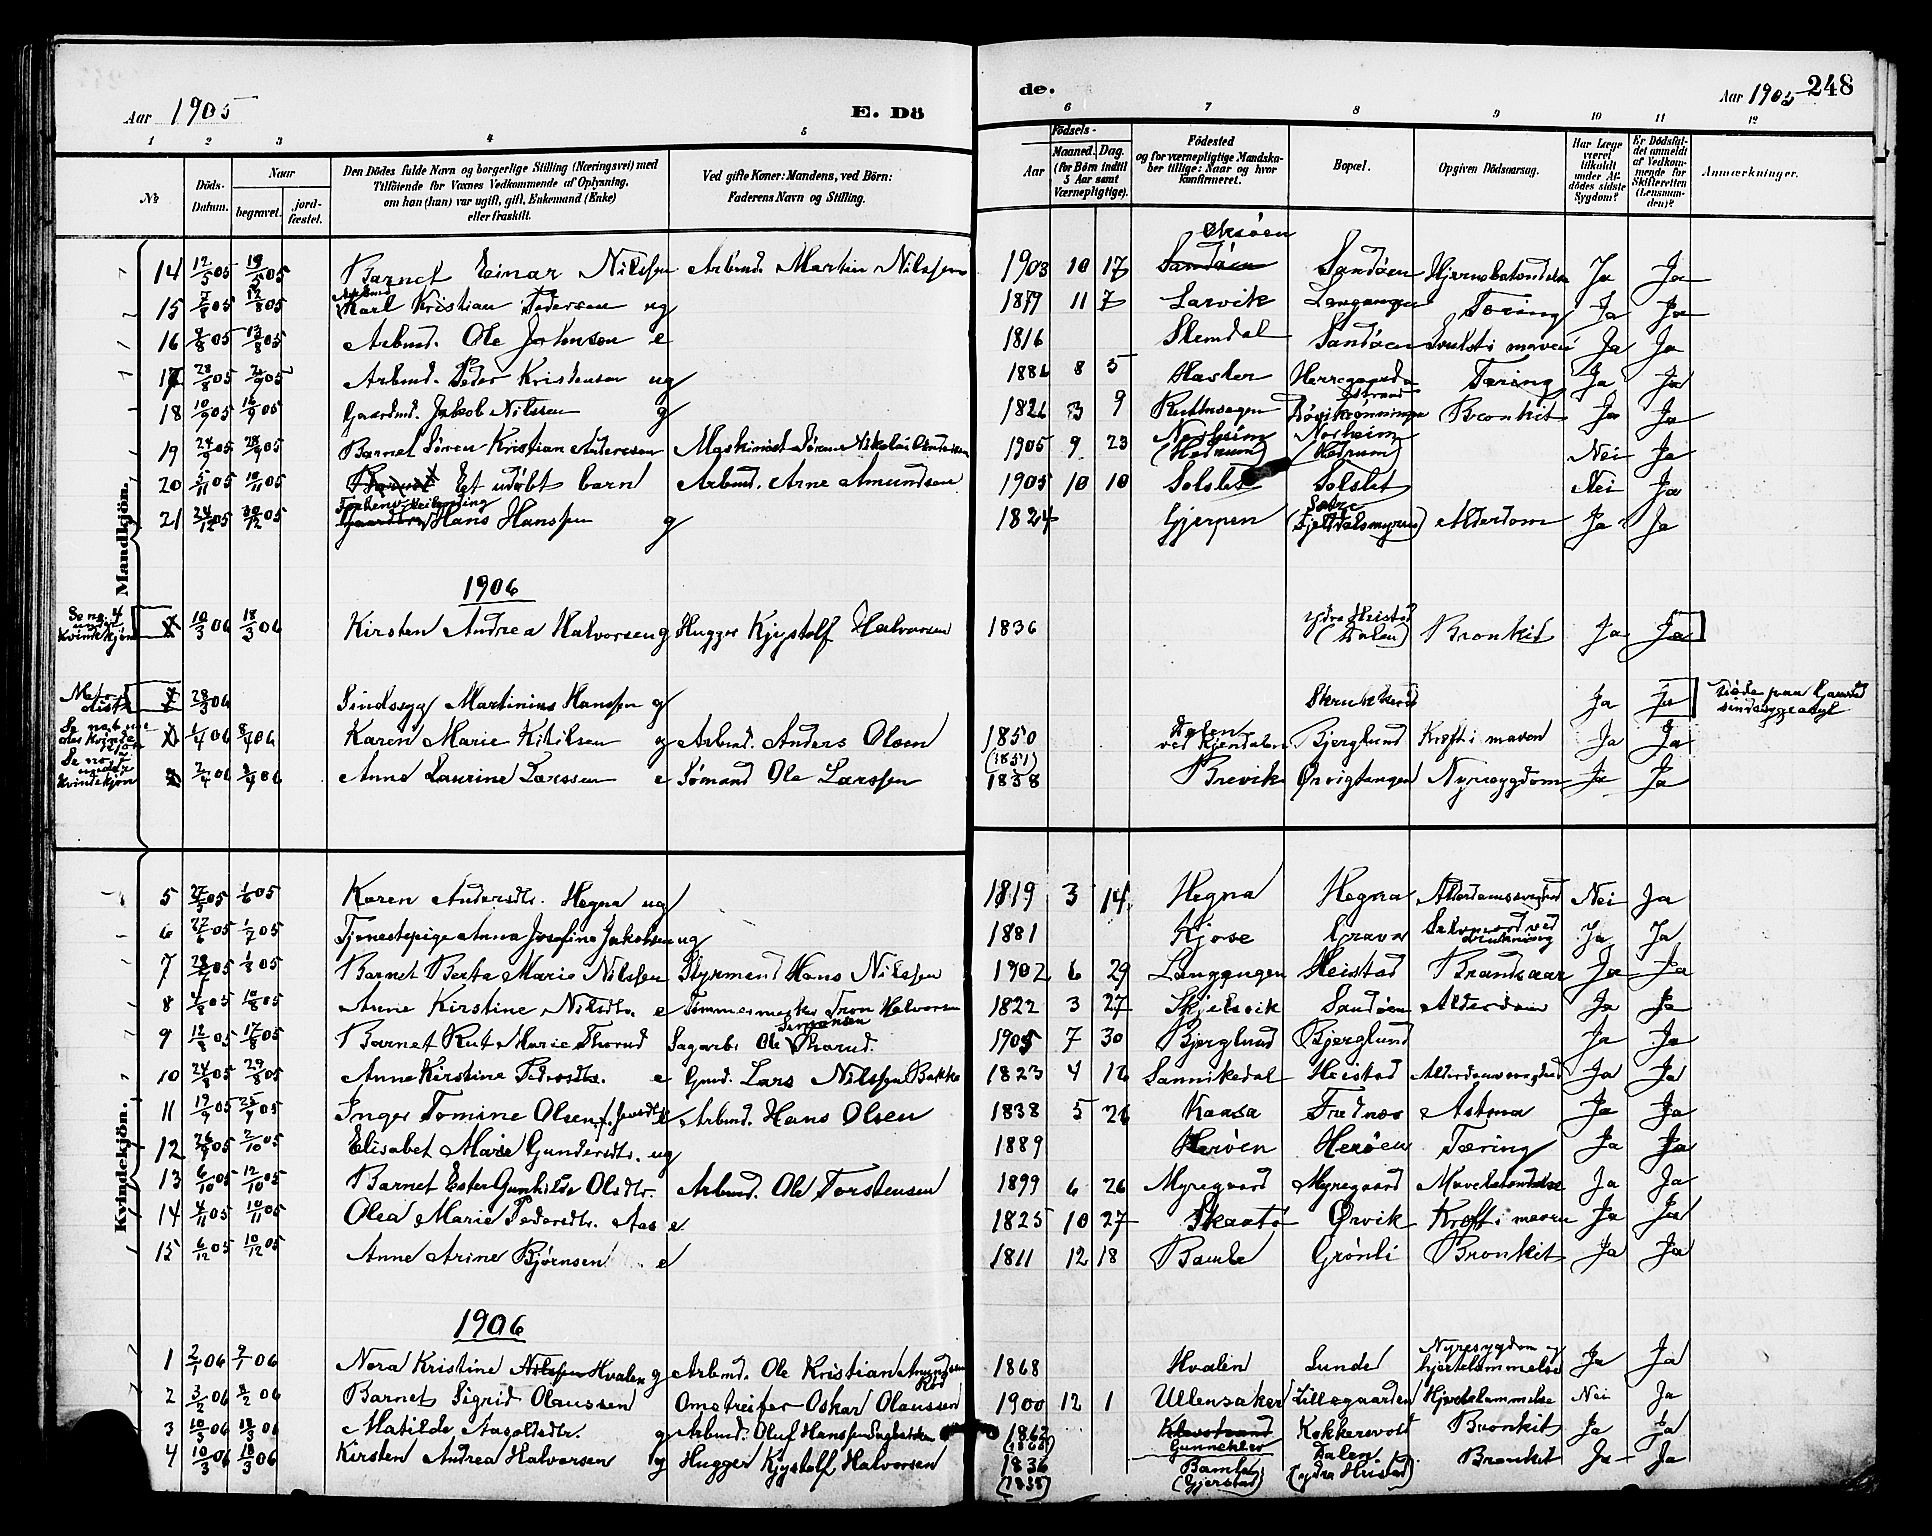 Aar 1905 E. Dö
de. Aar 1905 248
1 2 3 4 5 6 7 8 9 10 11 12
№ Döds-Datum. Naar begravet. jord-fæstet. Den Dödes fulde Navn og borgerlige Stilling (Næringsvei) med Tilföiende for Voxnes Vedkommende af Oplysning, om han (hun) var ugift, gift, Enkemand (Enke) eller fraskilt. Ved gifte Koner: Mandens, ved Börn: Faderens Navn og Stilling.
Födsels- Aar Maaned. Dag. (for Börn indtil 5 Aar samt Værnepligtige). Födested og for værnepligtige Mandskaber tillige: Naar og hvor konfirmeret. Bopæl. Opgiven Dödsaarsag. Har Læge været tilkaldt under Afdödes sidste Sygdom? Er Dödsfaldet anmeldt af Vedkommende for Skifteretten (Lensmanden)? Anmærkninger.
Mandkjön.
14 12/5 05 19/5 05 Barnet Einar Nilssen Arbmd. Martin Nilssen 1903 10 17 Oksøen Sandøen Hjernebetændelse Ja Ja
15 7/8 05 12/8 05 Arbmd Karl Kristian Pedersen ug 1879 11 7 Larvik Langangen Tæring Ja Ja
16 8/8 05 13/8 05 Arbmd. Ole Johnsen e 1816 Slemdal Sandøen Svulst i maven Ja Ja
17 28/8 05 2/9 05 Arbmd. Peder Kristensen ug 1886 8 5 Hasler Tæring Ja Ja
18 10/9 05 16/9 05 Gaardmd. Jakob Nilssen g 1826 3 9 Bronkit Ja Ja
19 24/9 05 28/9 05 Barnet Sören Kristian Andersen Maskinist Sören Nikolai Andersen 1905 9 23 Norheim (Hedrum) Norheim (Hedrum) Nei Ja
20 5/11 05 18/11 05 Et udöbt barn Arbmd. Arne Amundsen 1905 10 10 Solslet Solslet Nei Ja
21 24/12 05 30/12 05 Hans Hanssen g 1824 Gjerpen Alderdom Ja Ja
1906
Se no. 4 under Kvindekjön 10/3 06 18/3 06 Kirsten Andrea Halvorsen g Hugger Kjystolf Halvorsen 1836 ydre Heistad (Dalen) Bronkit Ja Ja
Metodist 06 Sindssyg Martinius Hanssen g Ja Ja Døde paa Gausta sindssygeasyl
1/4 06 8/4 06 Karen Marie Kitilsen g Arbmd. Anders Olsen 1850 (1851) Dalen ved Kjendalen Bjerglund Kræft i maven Ja Ja
Se no. under Kvindekjön 2/4 06 8/4 06 Anne Laurine Larssen e Sømand Ole Larssen 1838 Brevik Ørvigtangen Nyresygdom Ja Ja
Kvindekjön.
5 27/5 05 1/6 05 Karen Andersdtr. Hegna ug 1819 3 14 Hegna Hegna Alderdomssvaghed Nei Ja
6 27/6 05 1/7 05 Tjenestepige Anna Josefine Jakobsen ug 1881 Kjose Grava Selvmord ved drukning Ja Ja
7 05 1/8 05 Barnet Berta Marie Nilssen Styrmand Hans Nilssen 1902 6 29 Langangen Heistad Brandsaar Ja Ja
8 4/8 05 10/8 05 Anne Kirstine Nilsdtr. e Tømmermester Tron Halvorsen 1822 3 27 Skjelsvik Sandøen Alderdom Ja Ja
9 12/8 05 17/8 05 Barnet Rut Marie Thorud Sagarb. Ole Sörensen Thorud. 1905 7 30 Bjerglund Bjerglund Ja Ja
10 24/8 05 29/8 05 Anne Kirstine Pedersdtr. e Gmd. Lars Nilssen Bakke 1823 4 18 Sannikedal Heistad Alderdomssvaghed Ja Ja
11 19/9 05 25/9 05 Inger Tomine Olsen e Arbmd. Hans Olsen 1838 5 26 Kaasa Frednes Astma Ja Ja
12 26/9 05 2/10 05 Elisabet Marie Gundersdtr. ug 1889 Herøen Herøen Tæring Ja Ja
13 6/10 05 12/10 05 Barnet Ester Gunhilde Olsdtr. Arbmd. Ole Torstensen 1899 6 26 Myregaard Myregaard Mavebetændelse Ja Ja
14 4/11 05 10/11 05 Olea Marie Pedersdtr. Aas e 1825 10 27 Skaatø Ørvik Kræft i maven Ja Ja
15 6/12 05 10/12 05 Anne Arine Bjørnsen e 1811 12 18 Bamle Grønli Bronkit Ja Ja
1906
1 2/1 06 9/1 06 Nora Kristine Nilssen Hvalen g Arbmd. Ole Kristian Amundsen 1868 Hvalen Lunde Nyresygdom og hjertelammelse Ja Ja
2 3/2 06 8/2 06 Barnet Sigrid Olaussen Omstreifer Oskar Olaussen 1900 12 1 Ullensaker Lillegaarden Hjertelammelse Nei Ja
3 10/3 06 18/3 06 Matilde Aasoldsdtr. g Arbmd. Oluf Hanssen 1862 Gunneklev Kokkersvold Bronkit Ja Ja
4 10/3 06 18/3 06 Kirsten Andrea Halvorsen g Hugger Kjystolf Halvorsen 1836 (1835) Bamle (Gjerstad) Dalen (ydre Heistad) Bronkit Ja Ja